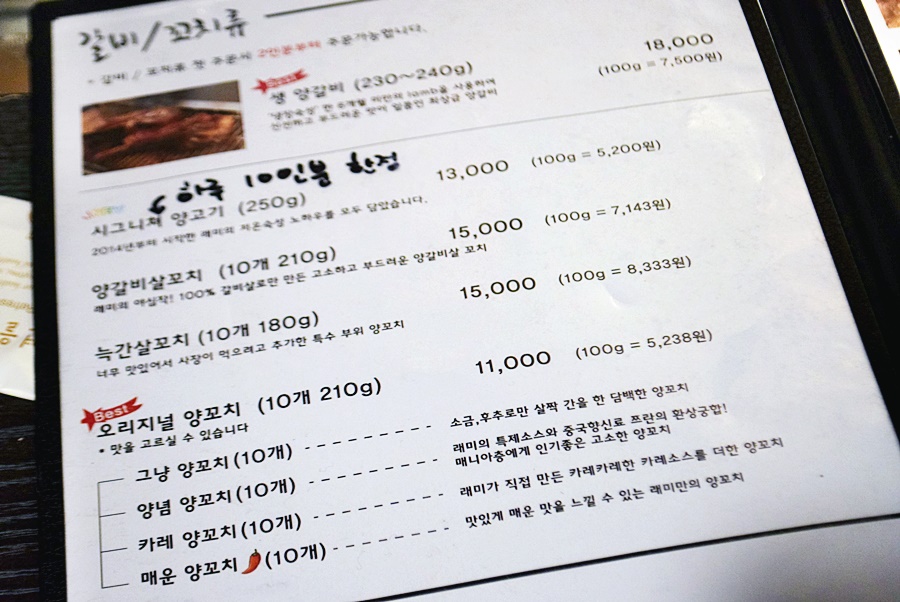 갈비/꼬치류
* 갈비 / 꼬치류 첫 주문시 2인분부터 주문가능합니다.
Best
생 양갈비 (230~240g) 18,000
(100g = 7,500원)
'냉장숙성' 한 6개월 미만의 lamb을 사용하여
신선하고 부드러운 맛이 일품인 최상급 양갈비
하루 10인분 한정
시그니처 양고기 (250g) 13,000 (100g = 5,200원)
2014년부터 시작한 래미의 저온숙성 노하우를 모두 담았습니다.
양갈비살꼬치 (10개 210g) 15,000 (100g = 7,143원)
래미의 야심작! 100% 갈비살로만 만든 고소하고 부드러운 양갈비살 꼬치
늑간살꼬치 (10개 180g) 15,000 (100g = 8,333원)
너무 맛있어서 사장이 먹으려고 추가한 특수 부위 양꼬치
Best
오리지널 양꼬치 (10개 210g) 11,000 (100g = 5,238원)
• 맛을 고르실 수 있습니다
그냥 양꼬치(10개) 소금,후추로만 살짝 간을 한 담백한 양꼬치
양념 양꼬치(10개) 래미의 특제소스와 중국향신료 쯔란의 환상궁합!
매니아층에게 인기좋은 고소한 양꼬치
카레 양꼬치(10개) 래미가 직접 만든 카레카레한 카레소스를 더한 양꼬치
매운 양꼬치🌶(10개) 맛있게 매운 맛을 느낄 수 있는 래미만의 양꼬치